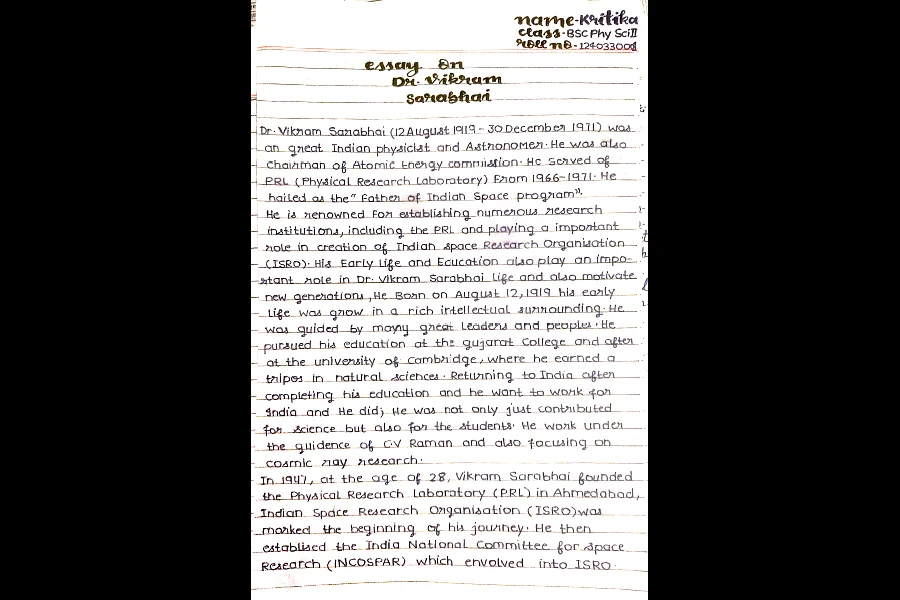 name-Kritika
class-BSC Phy Sci II
roll no-124033001
essay on
Dr. Vikram
Sarabhai
Dr. Vikram Sarabhai (12 August 1919 - 30 December 1971) was
an great Indian physicist and Astronomer. He was also
Chairman of Atomic Energy commission. He served of
PRL (Physical Research Laboratory) From 1966-1971. He
hailed as the "Father of Indian Space program".
He is renowned for establishing numerous research
institutions, including the PRL and playing a important
role in creation of Indian space Research Organisation
(ISRO). His Early Life and Education also play an impo-
stant role in Dr. Vikram Sarabhai Life and also motivate
new generations, He Born on August 12, 1919 his early
Life was grow in a rich intellectual surrounding. He
was guided by many great Leaders and peoples. He
pursued his education at the gujarat College and after
at the university of Cambridge, where he earned a
tripos in natural sciences. Returning to India after
completing his education and he want to work for
India and He did; He was not only just contributed
for science but also for the students. He work under
the guidence of C.V Raman and also focusing on
cosmic ray research.
In 1947, at the age of 28, Vikram Sarabhai founded
the Physical Research Laboratory (PRL) in Ahmedabad,
Indian Space Research Organisation (ISRO) was
marked the beginning of his journey. He then
establised the India National Committee for space
Research (INCOSPAR) which envolved into ISRO.